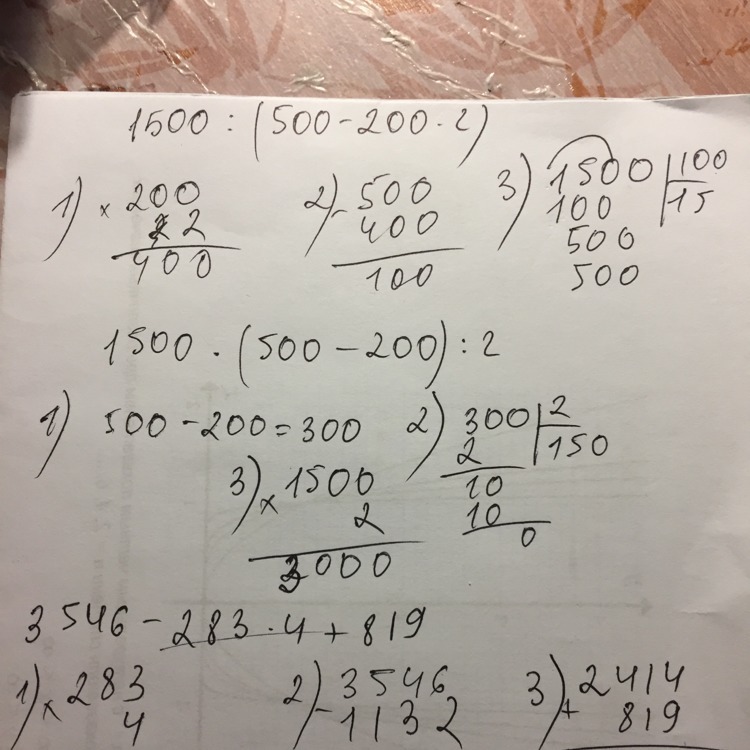 1500 : (500 - 200 · 2)
1) × 200
2
400
2) - 500
400
100
3) 1500 | 100
100 | 15
500
500
1500 · (500 - 200) : 2
1) 500 - 200 = 300
2) 300 | 2
2 | 150
10
10
0
3) × 1500
2
3000
3546 - 283 · 4 + 819
1) × 283
4
2) - 3546
1132
3) + 2414
819